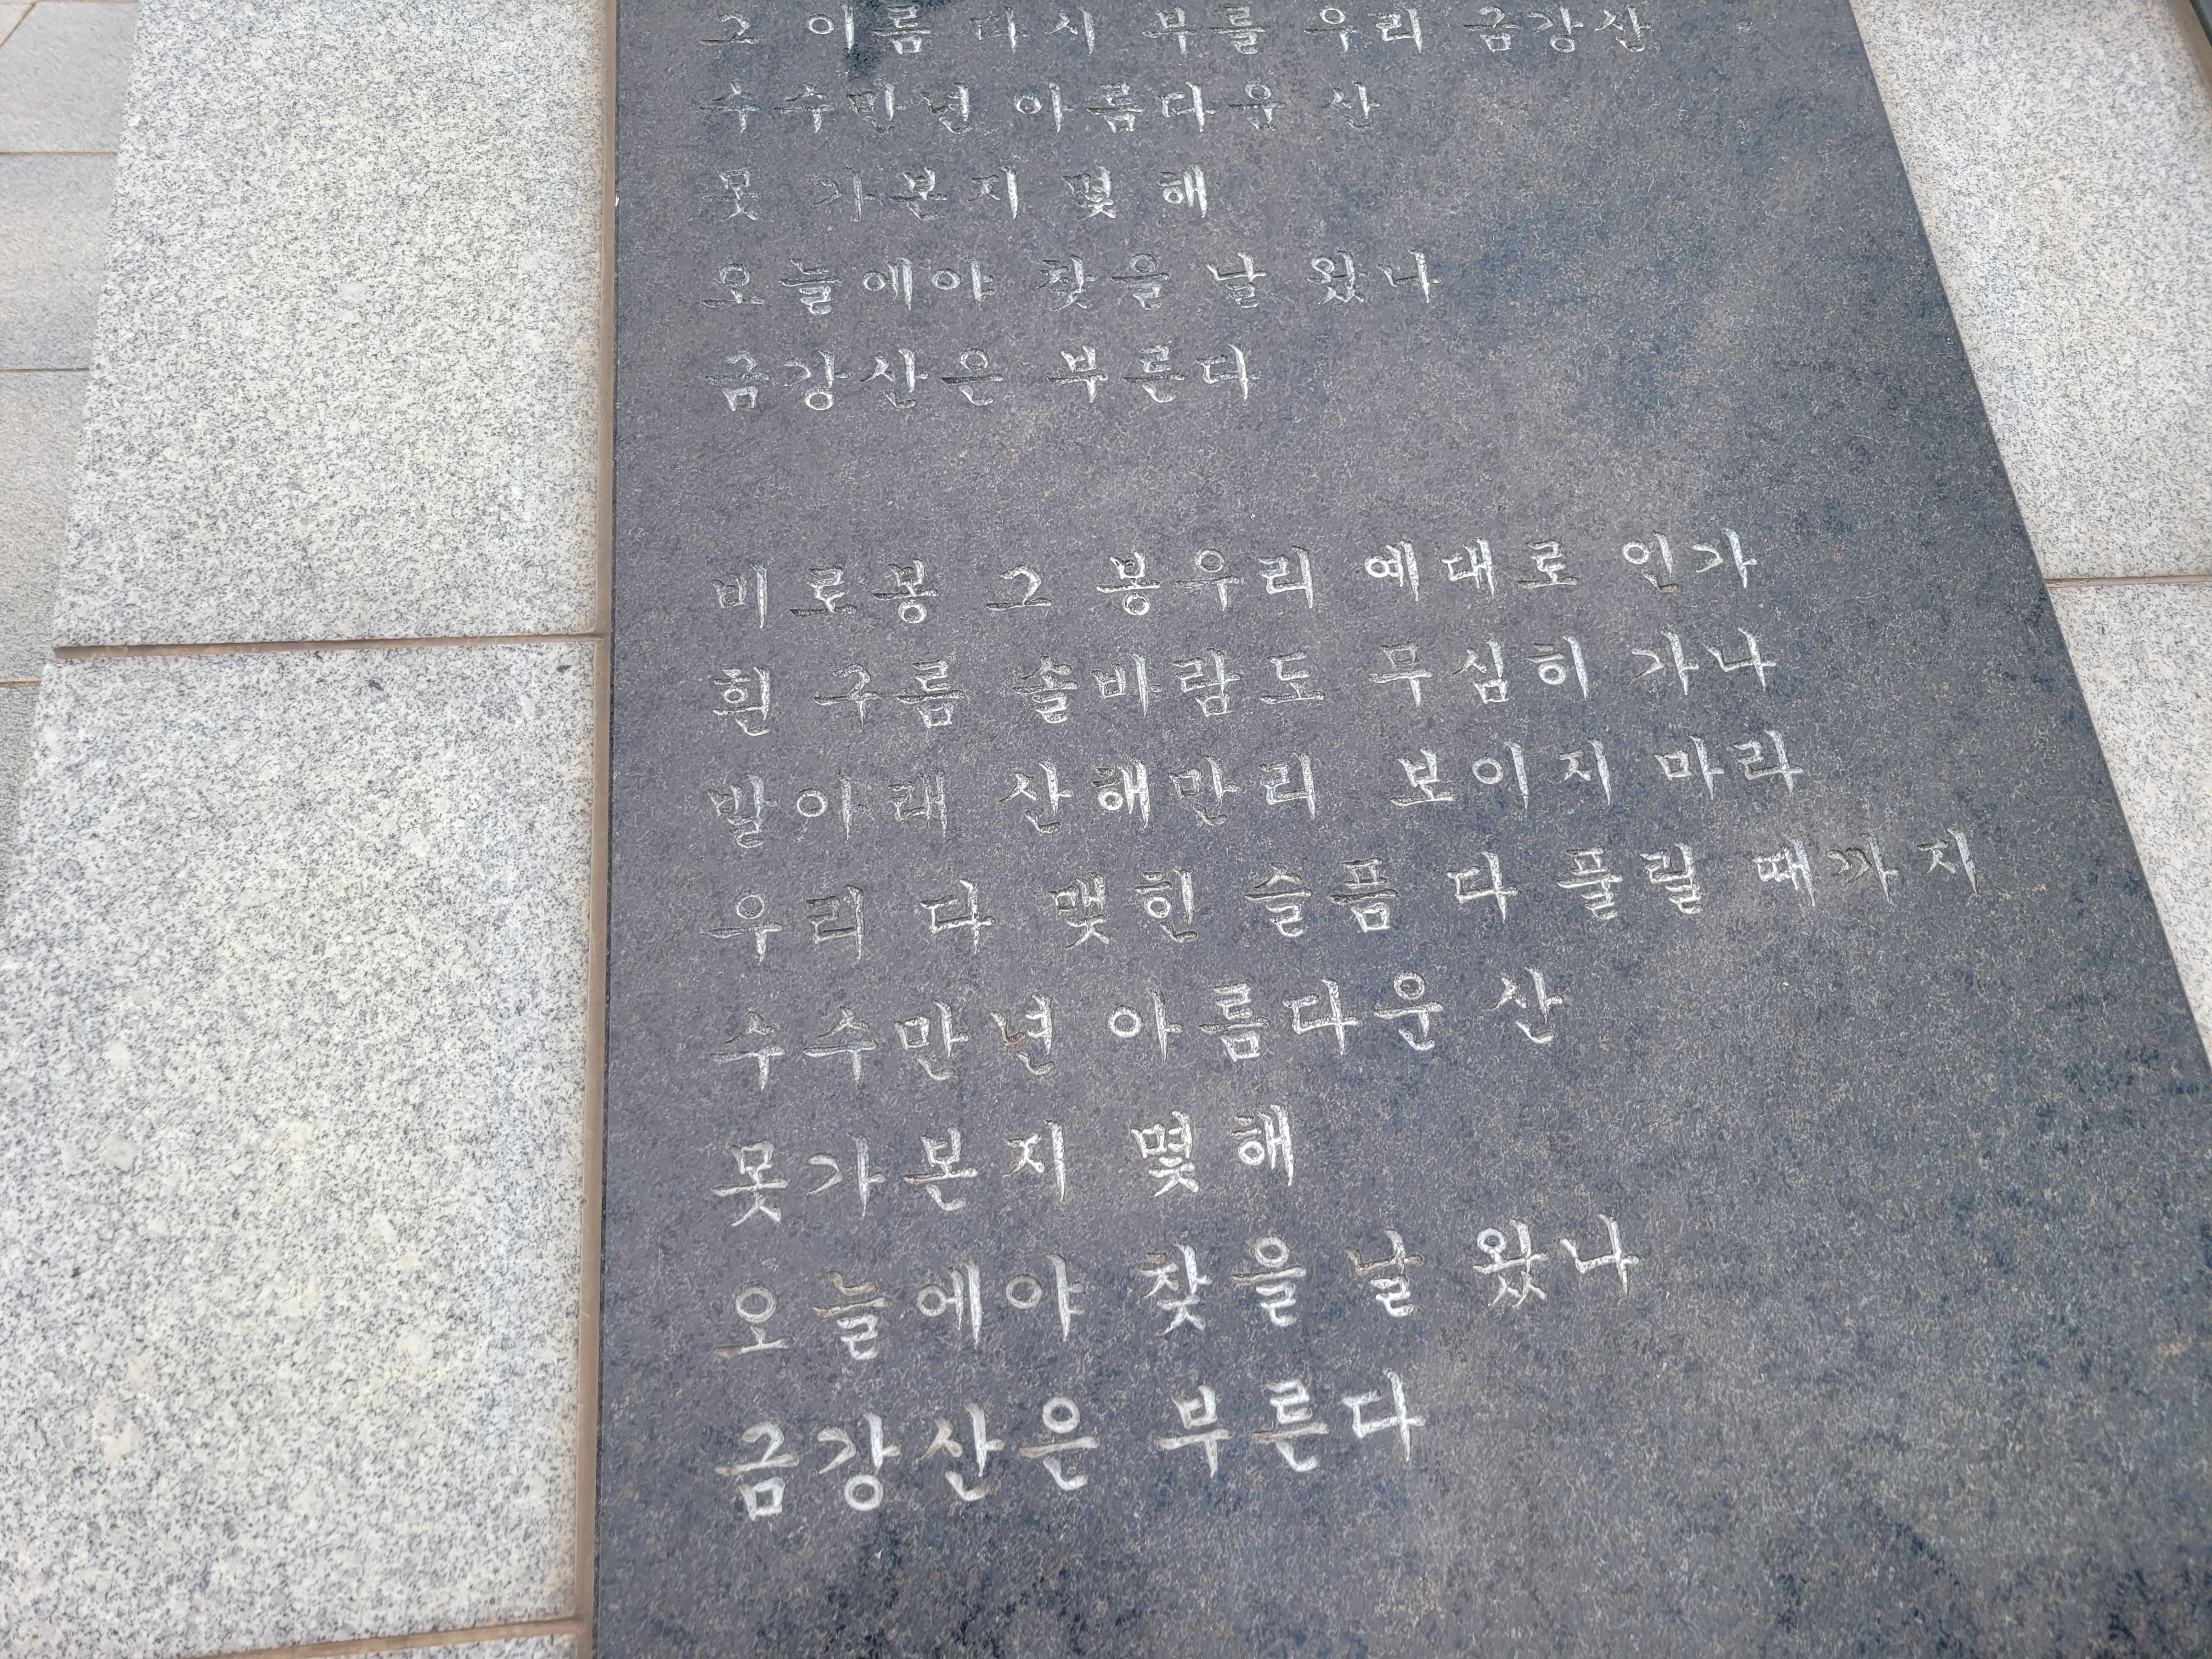 그 이름 다시 부를 우리 금강산
수수만년 아름다운 산
못 가본지 몇 해
오늘에야 찾을 날 왔나
금강산은 부른다
비로봉 그 봉우리 예대로 인가
흰 구름 솔바람도 무심히 가나
발아래 산해만리 보이지 마라
우리 다 맺힌 슬픔 다 풀릴 때까지
수수만년 아름다운 산
못가본지 몇 해
오늘에야 찾을 날 왔나
금강산은 부른다